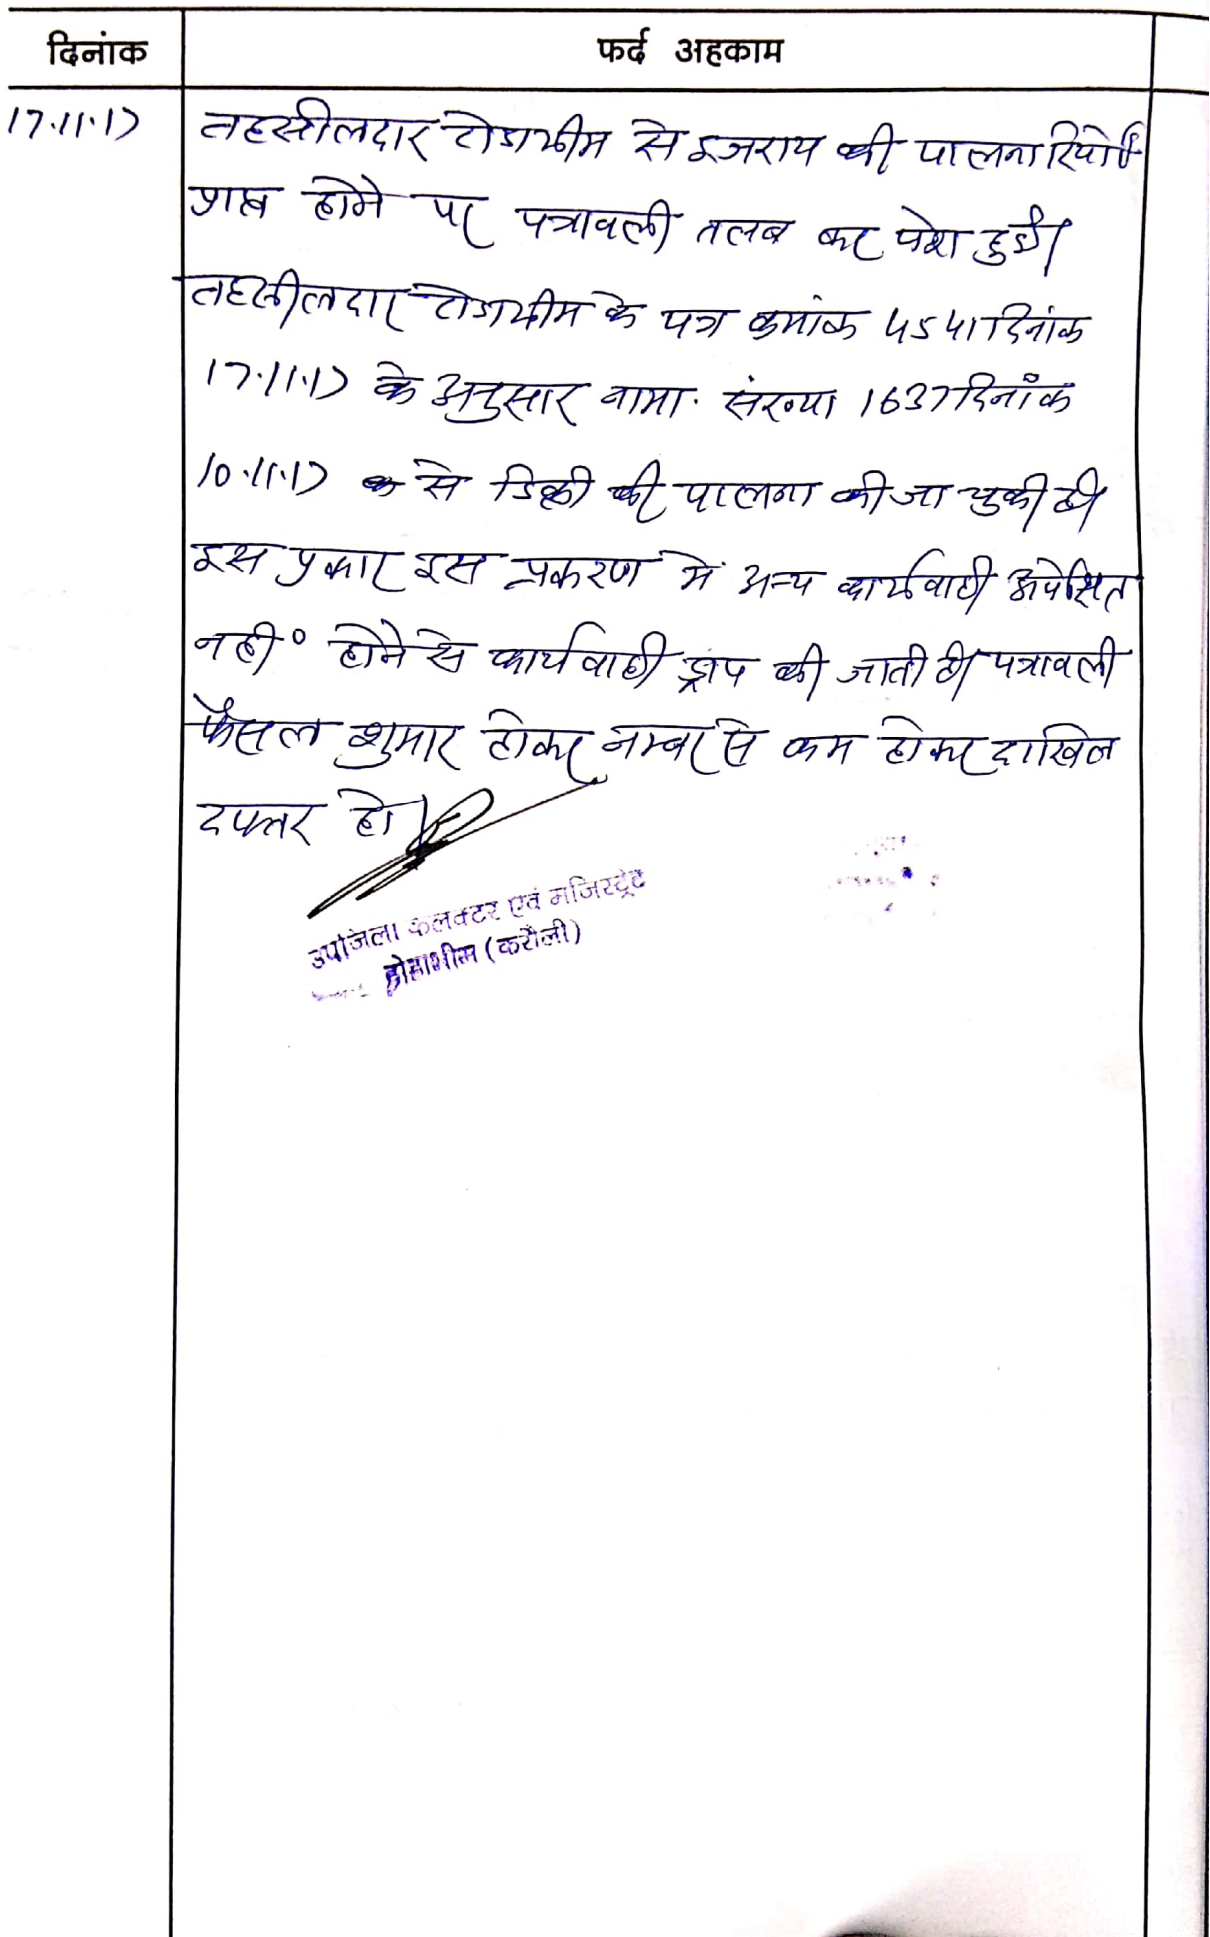 दिनांक
फर्द अहकाम
17.11.17
तहसीलदार टोडाभीम से इजराय की पालना रिपोर्ट
प्राप्त होने पर पत्रावली तलब कर पेश हुई।
तहसीलदार टोडाभीम के पत्र क्रमांक 4541 दिनांक
17.11.17 के अनुसार नामा. संख्या 1637 दिनांक
10.11.17 से डिक्री की पालना की जा चुकी है।
इस प्रकार इस प्रकरण में अन्य कार्यवाही अपेक्षित
नहीं होने से कार्यवाही ड्राप की जाती है। पत्रावली
फैसल शुमार होकर नम्बर से कम होकर दाखिल
दफ्तर हो।
उपजिला कलक्टर एवं मजिस्ट्रेट
टोडाभीम (करौली)